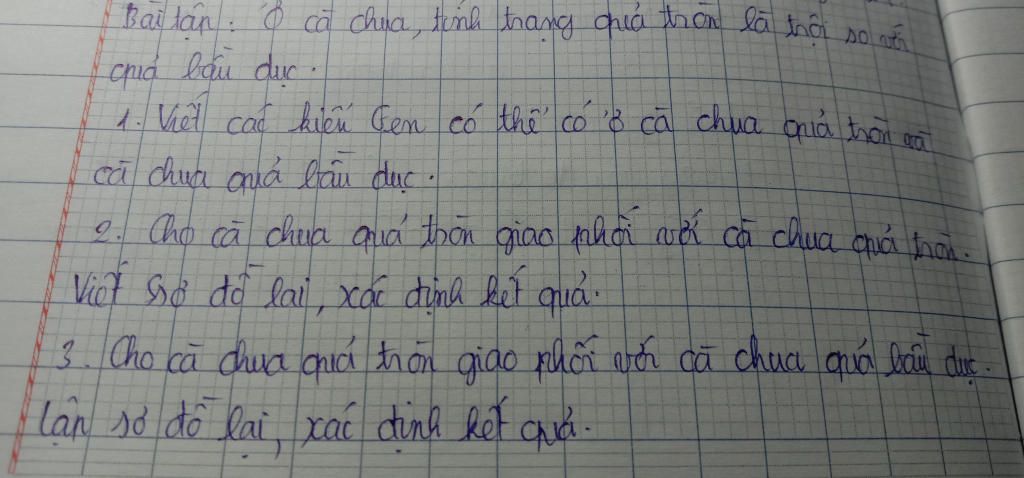 Bài tập: Ở cà chua, tính trạng quả tròn là trội so với
quả bầu dục.
1. Viết các kiểu Gen có thể có ở cà chua quả tròn và
cà chua quả bầu dục.
2. Cho cà chua quả tròn giao phối với cà chua quả tròn.
Viết Sơ đồ lai, xác định kết quả.
3. Cho cà chua quả tròn giao phối với cà chua quả bầu dục.
lập sơ đồ lai, xác định kết quả.